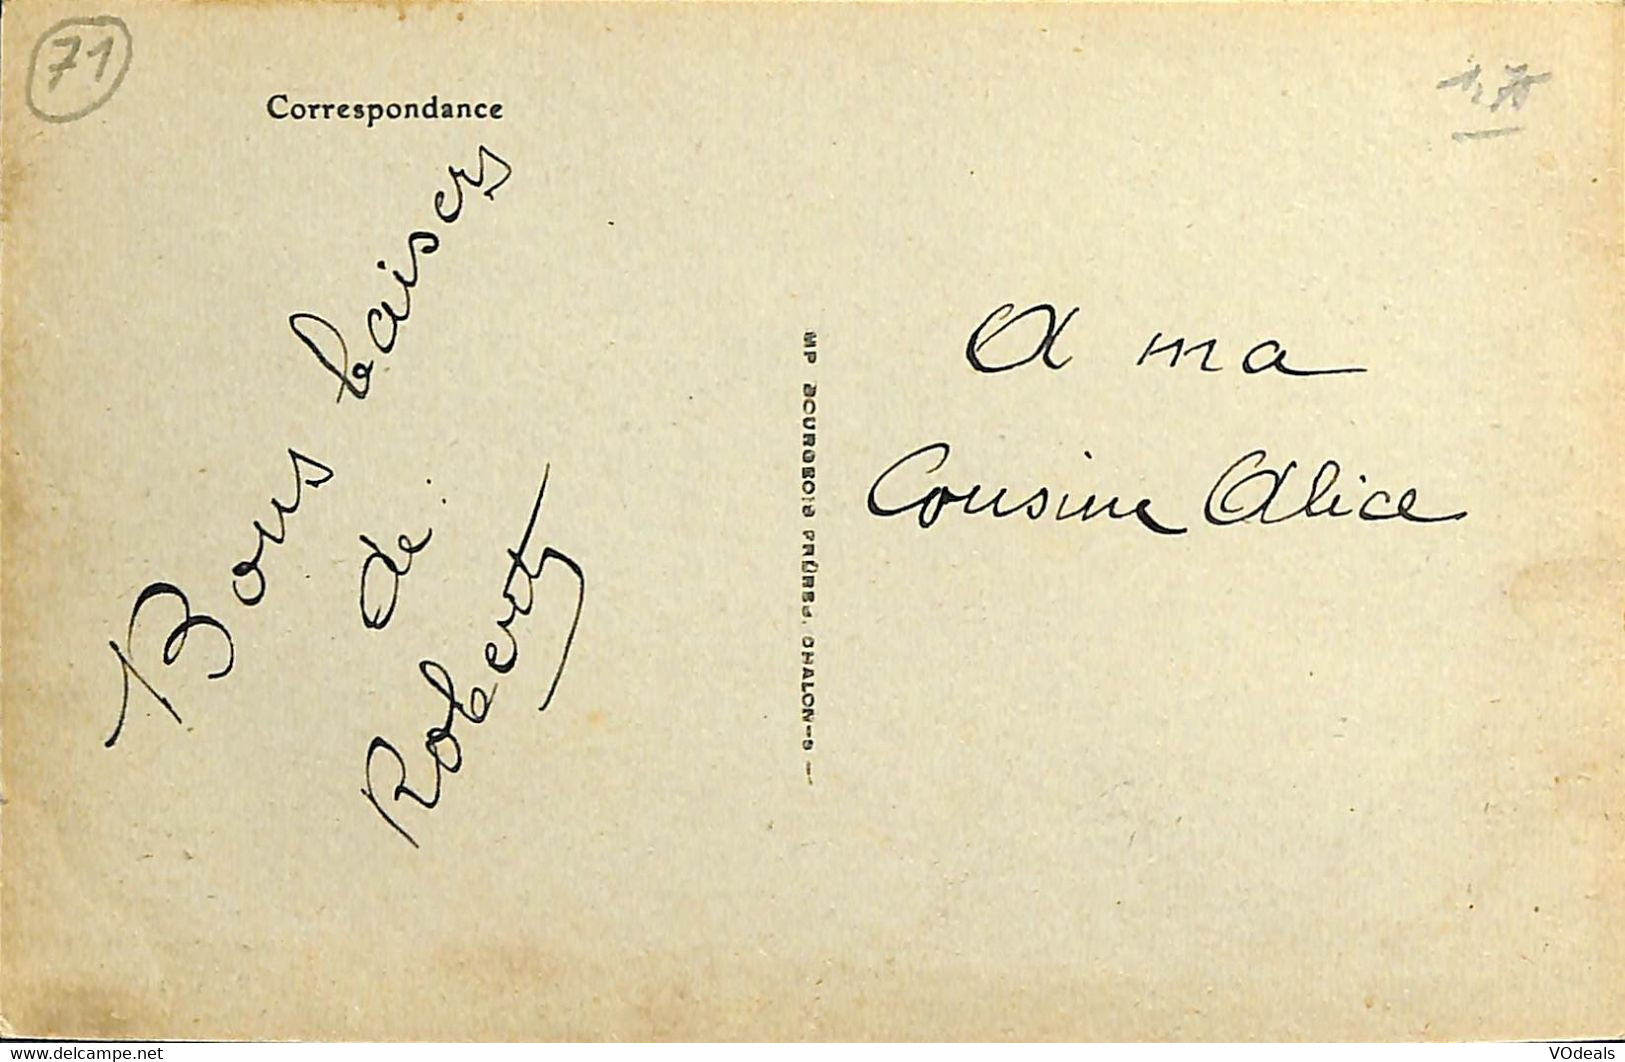 71
Correspondance
Bons baisers
de
Robert
MP BOURGEOIS FRÈRES, CHALON-S
A ma
Cousine Alice
VOdeals